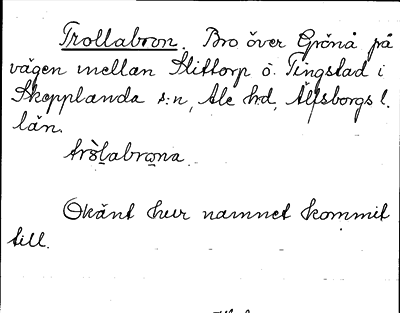 Trollabron. Bro över Grönå på
vägen mellan Slittorp o. Tingstad i
Skepplanda s:n, Ale hd, Älfsborgs l.
län.
trò̀l̥abrωna.
Okänt hur namnet kommit
till.